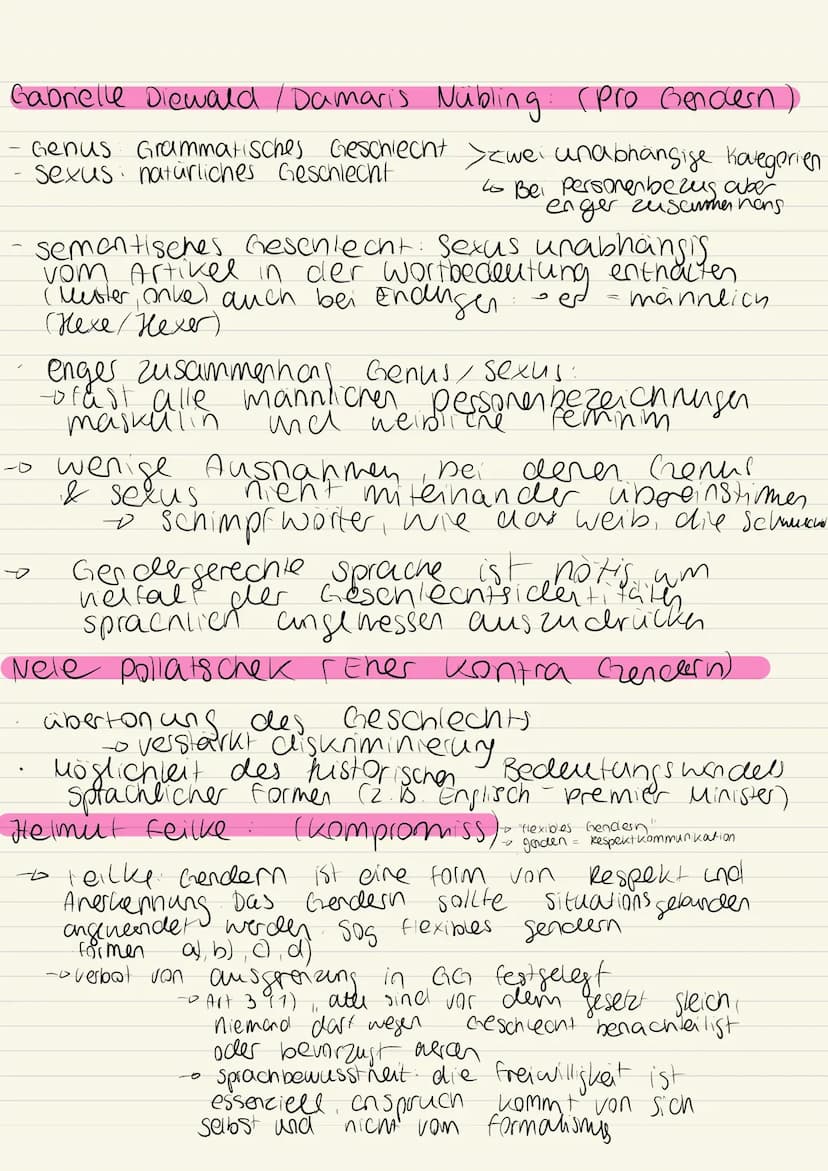 Gabrielle Diewald / Damaris Nübling: (Pro Gendern)
- Genus: Grammatisches Geschlecht > zwei unabhängige Kategorien
- Sexus: natürliches Geschlecht ↳ Bei Personenbezug aber
enger zusammenhang
- semantisches Geschlecht: Sexus unabhängig
vom Artikel in der Wortbedeutung enthalten
auch bei Endungen: → er = männlich
(Hexe/Hexer)
enger zusammenhang Genus/Sexus:
→ fast alle männlichen personenbezeichnungen
maskulin und weibliche feminim
→ wenige Ausnahmen, bei denen Genus
& sexus nicht miteinander übereinstimmen
→ schimpfwörter, wie das weib, die
→ Gendergerechte sprache ist nötig um
vielfalt der Geschlechtsidentitäten
sprachlich angemessen auszudrücken
Nele Pollatschek (Eher Kontra Gendern)
· übertonung des Geschlechts
→ verstärkt diskriminierung
· Möglichkeit des historischen Bedeutungswandels
sprachlicher Formen (z.B. Englisch - premier Minister)
Helmut Feilke: (Kompromiss) → "flexibles Gendern"
→ gendern = Respektkommunikation
→ Feilke: Gendern ist eine form von Respekt und
Anerkennung. Das Gendern sollte situationsgebunden
angewendet werden. sog flexibles gendern
formen a), b), c), d)
→ verbot von ausgrenzung in GG festgelegt
→ Art 3 (1), alle sind vor dem gesetz gleich,
niemand darf wegen Geschlecht benachteiligt
oder bevorzugt weren
→ sprachbewusstheit: die Freiwilligkeit ist
essenziell, anspruch kommt von sich
selbst und nicht vom formalismus